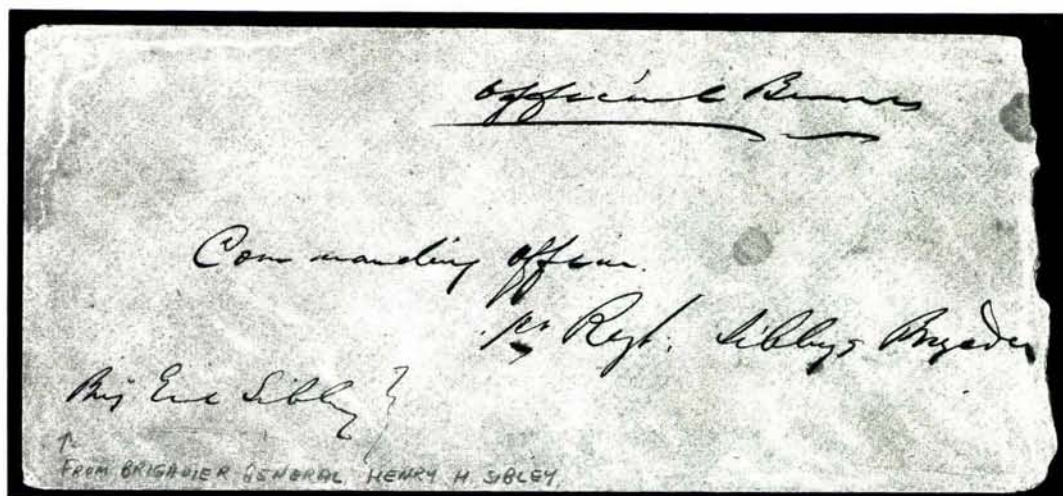 Official Business
Commanding Officer.
1st Regt. Sibleys Brigade
Brig Genl Sibley }
↑
FROM BRIGADIER GENERAL HENRY H. SIBLEY